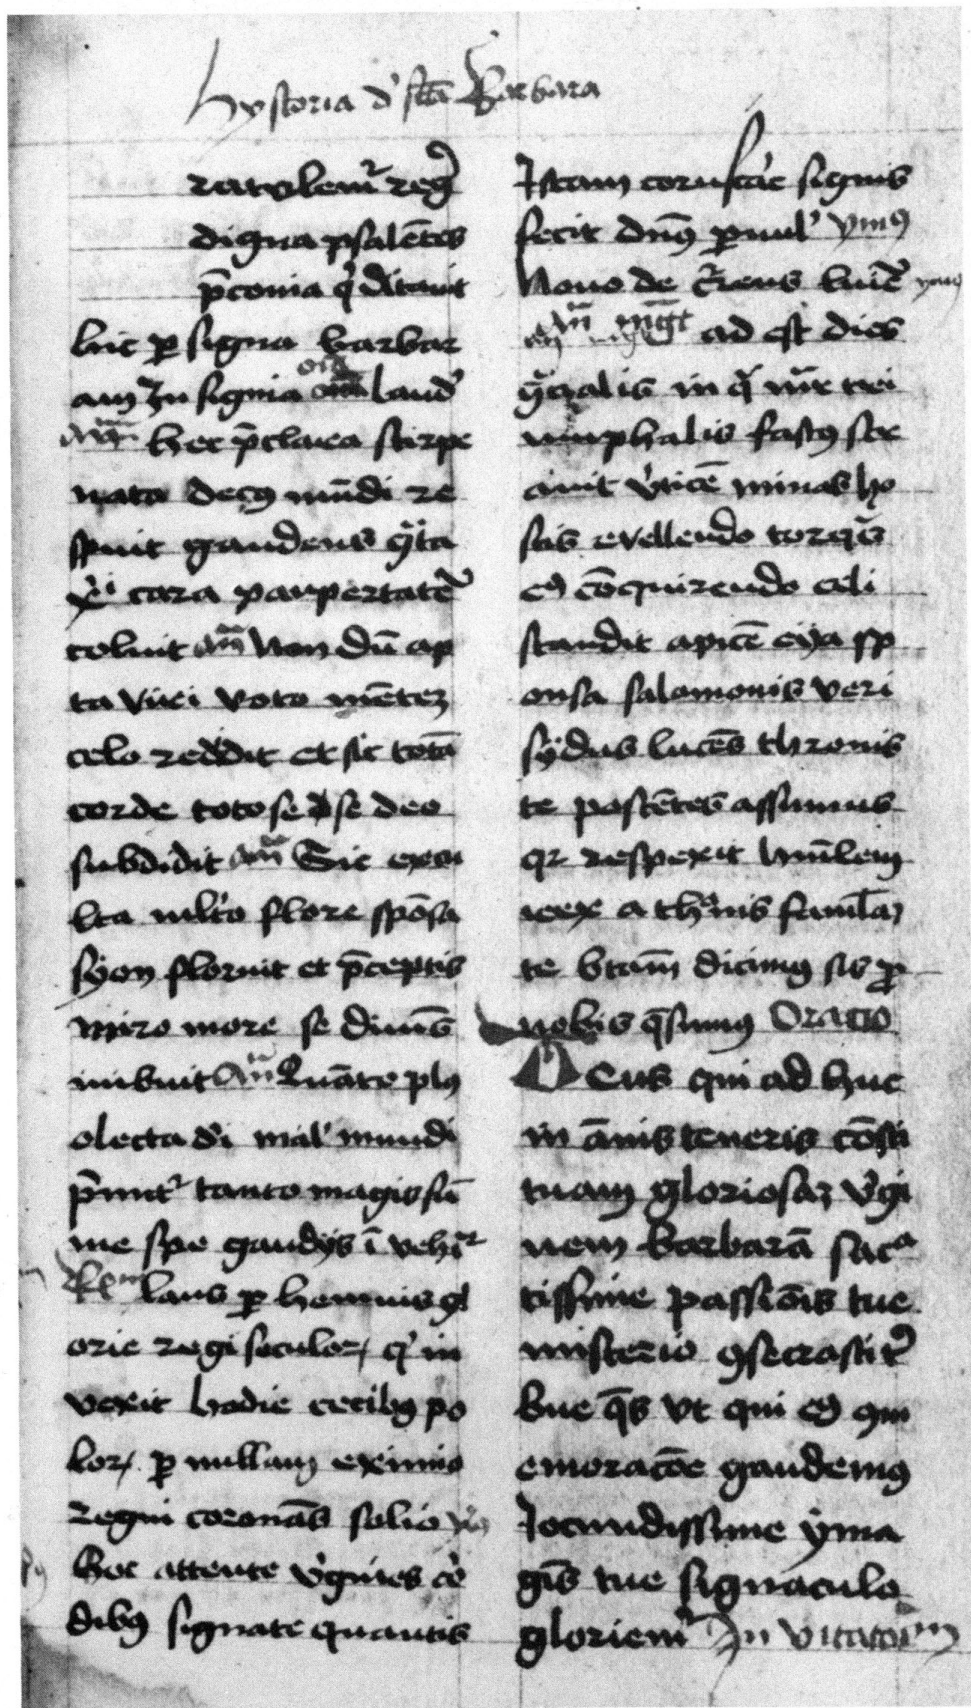 hystoria d' scta Barbara
ratulem' reg'
digna psalētes
p̄conia q' ditauit
hic p signa barbar
am In signia laud'
hec p̄clara stirpe
nata decꝰ mūdi re
spuit gaudens
xp̄i cara paupertatē
coluit an̄ Non dū ap
ta viri voto mētez
celo reddit et sic totā
corde toto se deo
subdidit an̄ Sic excu
lta flore spōsa
syon floruit et p̄ceptis
miro more se diuīs
imbuit an̄ Quāto plꝰ
electa d'i mal' mundi
p̄mit' tanto magis sū
me spe gaudijs ī vehit'
laus p hennis gl
orie regi seculoꝝ q' in
vexit hodie cetibꝰ po
loꝝ p nullam eximio
regni coronās solio
hoc attente v'gines cē
dibꝰ signate quantis
Istam coruscar' signis
fecit dn̄s ymꝰ
Nouo de
ad est dies
in q'
umphalis fastꝰ
auit v'ticē minas ho
stis evellendo
conquirendo celi
scandit apicē eya sp
onsa salomonis veri
sydus lucēs thronis
te poscētes assumus
qr respexit humlem
rex a thronis famlaꝫ
te btam̄ dicimꝰ sis p
nobis q̄sumꝰ Oratio
Deus qui ad huc
in ānis teneris cōsti
tuam gloriosaꝫ v'gi
nem barbarā sac̄
tissime passiōis tue
misterio ꝯsecrasti t'
bue q̄s vt qui eꝰ ꝯm
emoracōe gaudemꝰ
Iocundissime yma
gīs tue signaculo
gloriem' In vitatoriū